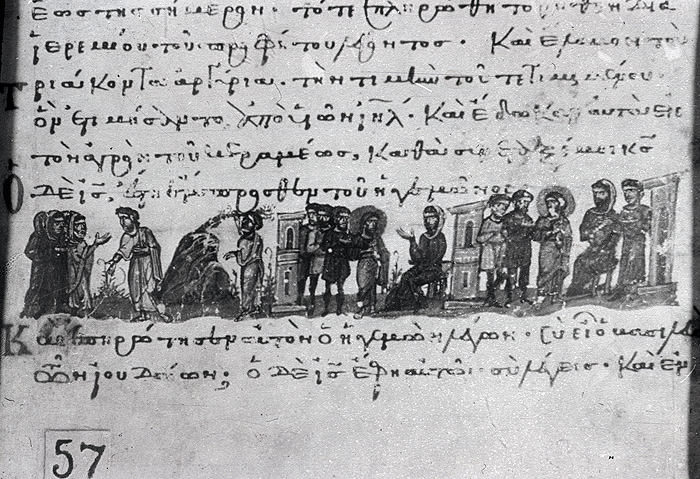 ἕως τῆς σήμερον · τότε ἐπληρώθη τὸ ῥηθὲν διὰ
ἱερεμίου τοῦ προφήτου λέγοντος · Καὶ ἔλαβον τὰ
τριάκοντα ἀργύρια · τὴν τιμὴν τοῦ τετιμημένου ·
ὃν ἐτιμήσαντο ἀπὸ υἱῶν ἰηλ · Καὶ ἔδωκαν αὐτὰ εἰς
τὸν ἀγρὸν τοῦ κεραμέως, καθὰ συνέταξέ μοι κς
Ὁ δὲ ις ἔστη ἔμπροσθεν τοῦ ἡγεμόνος
Καὶ ἐπηρώτησεν αὐτὸν ὁ ἡγεμὼν λέγων · σὺ εἶ ὁ βασιλεὺς
τῶν ἰουδαίων; ὁ δὲ ις ἔφη αὐτῷ · σὺ λέγεις · Καὶ ἐν
57